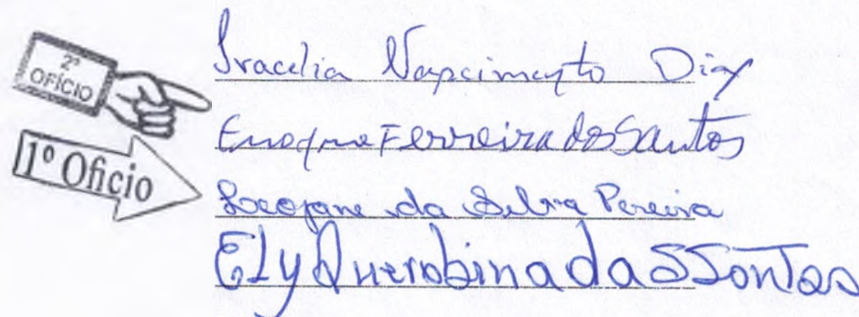 2º
OFÍCIO
1º Oficio
Iracelia Nascimento Dias
Ferreira dos Santos
da Silva Pereira
Ely Querobina da S Santos